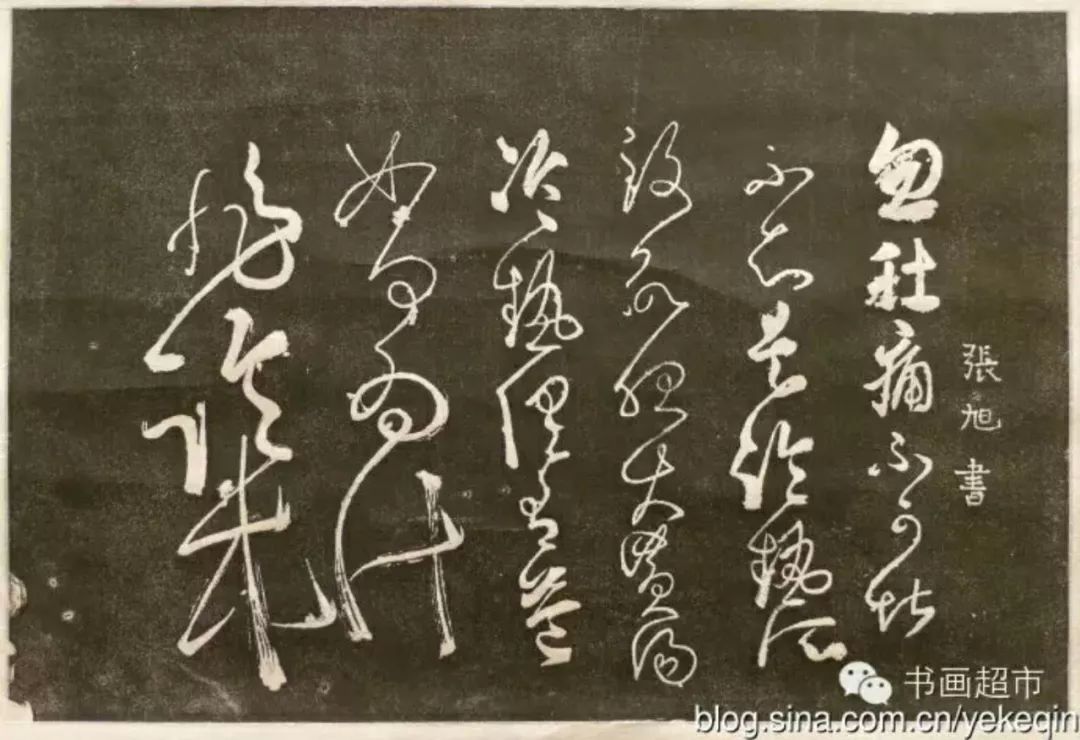 張旭書
忽肚痛不可堪
不知是冷熱所
致欲服大黃湯
冷熱俱有益
如何為計
非臨床
书画超市
blog.sina.com.cn/yekeqin